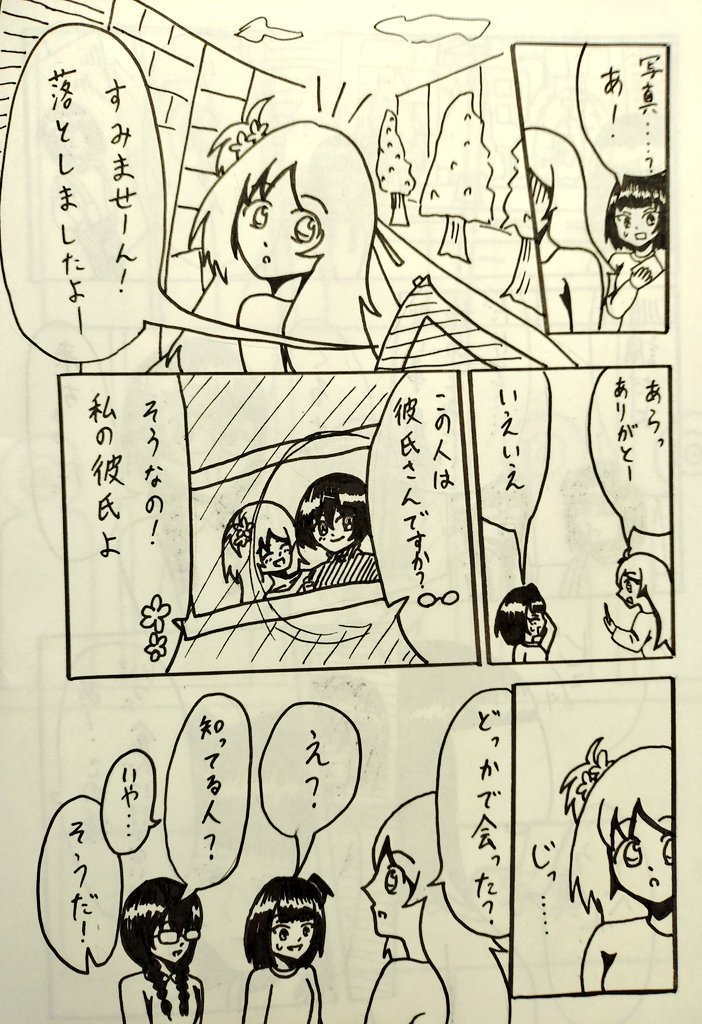 写真‥‥?
あー!
すみませーん!
落としましたよー
あらっ
ありがとー
いえいえ
この人は
彼氏さんですか?
そうなの!
私の彼氏よ
じっ‥‥‥
どっかで会った?
え?
知ってる人?
いや‥‥
そうだ!